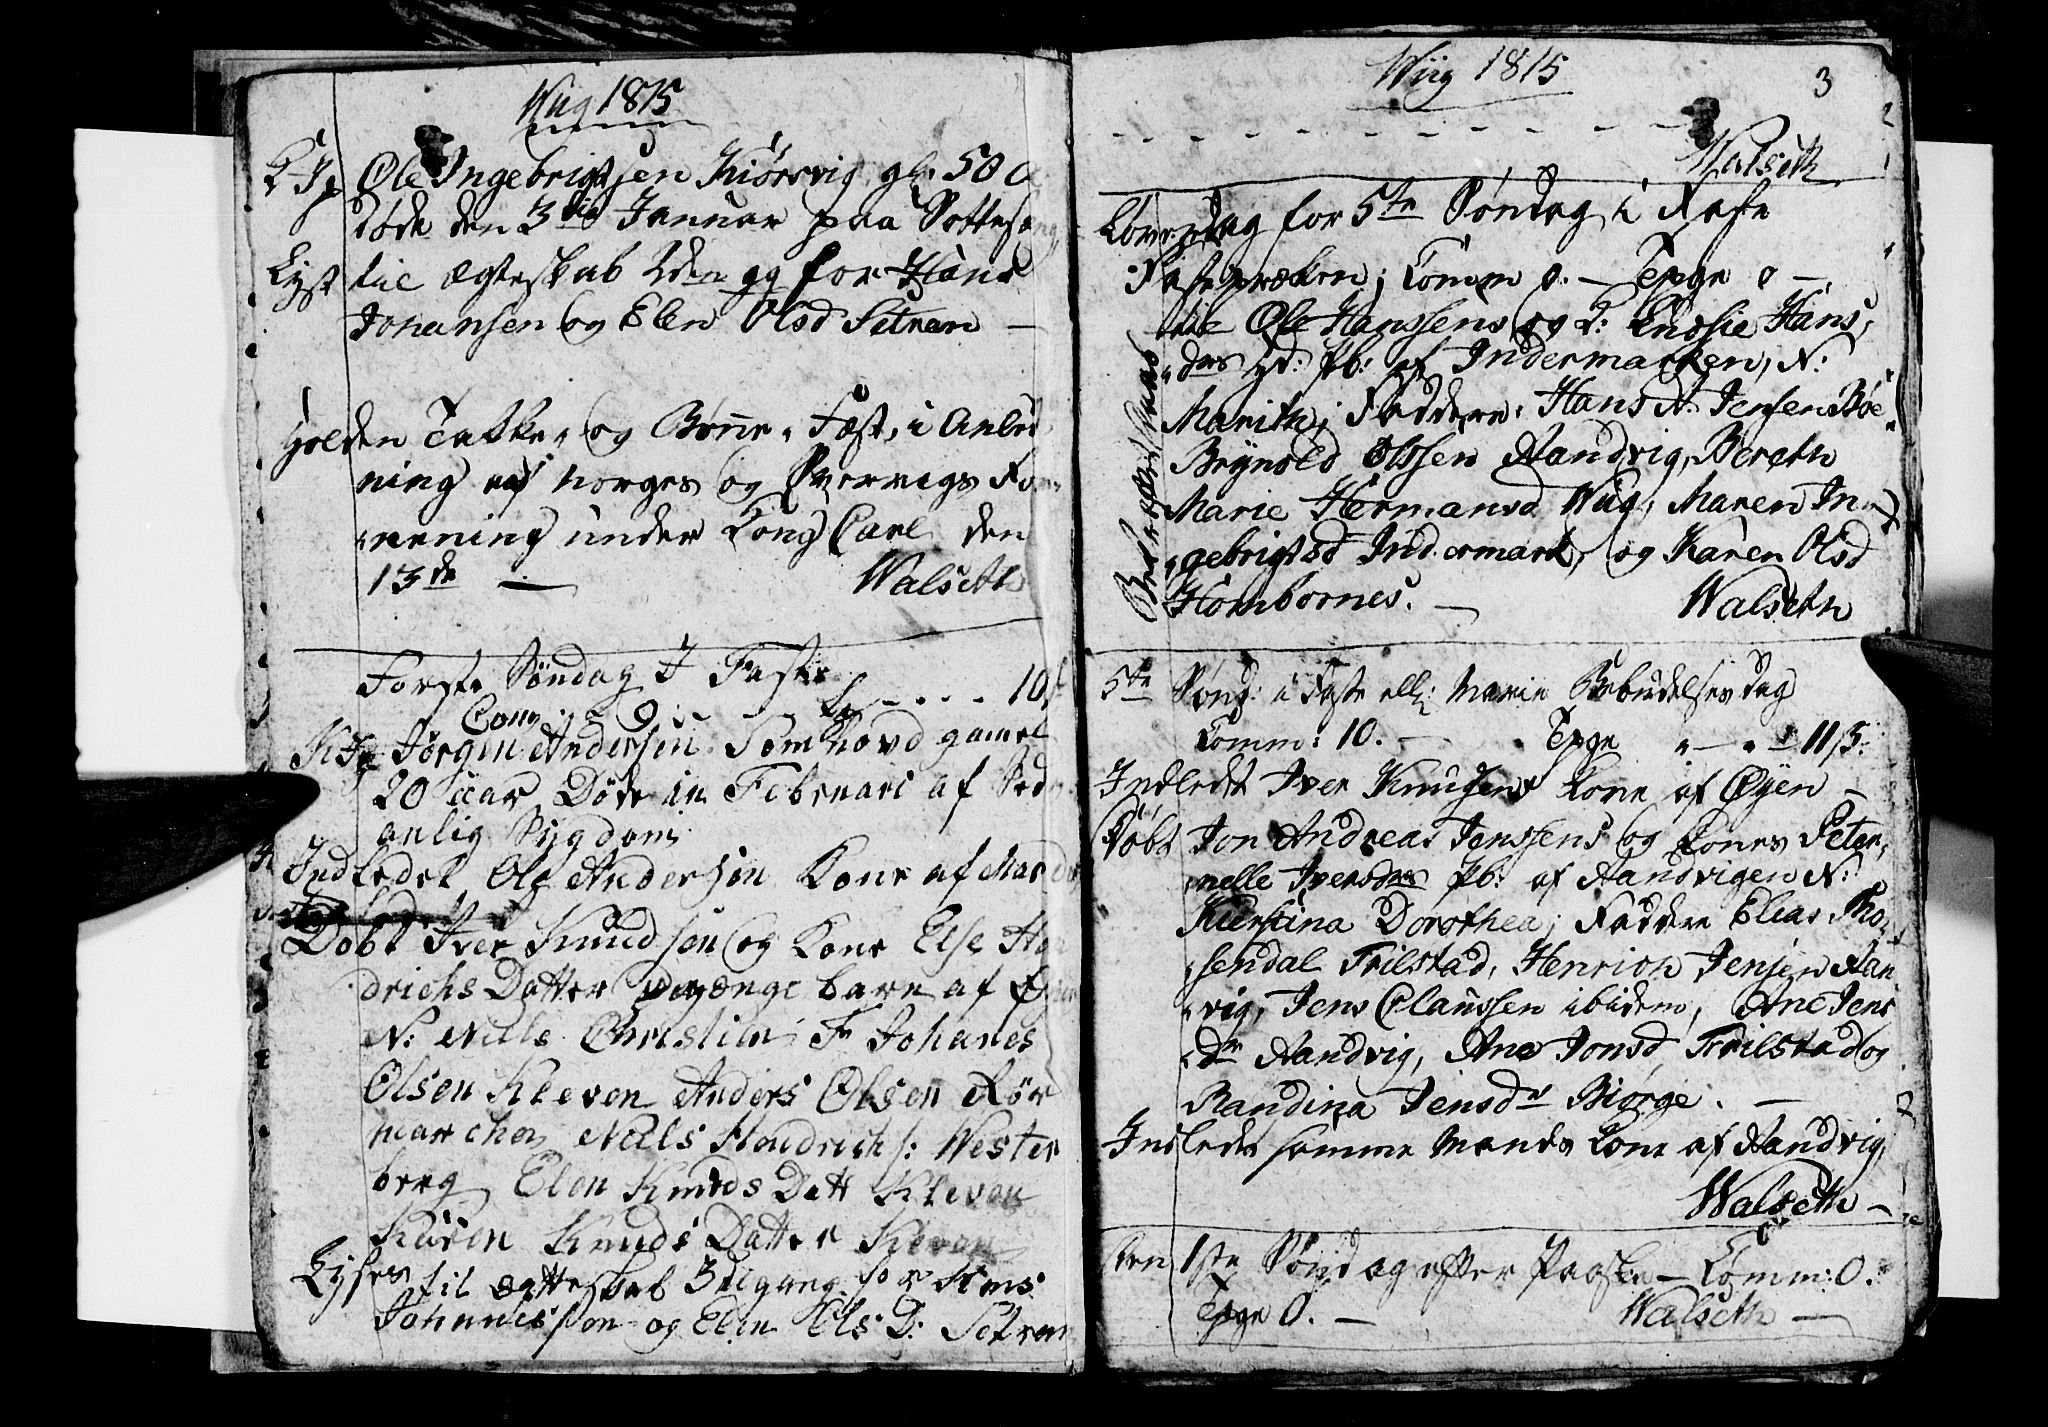 Wiig 1815
Ole Ingebrigtsen Kiørsvig gl. 50
døde den 3die Januar paa
Lyst til Ægteskab 2den gg for Hans
Johansen og Elen Olsd Setran —
Holden Takke- og Bønne-Fæst, i Anled
ning af Norges og Sverrigs For
eening under Kong Carl den
13de — Walseth
Første Søndag I Faste
Com 9 10
Jørgen Andersen Somhovd gamel
20 aar Døde in Februari af
anlig Sygdom
Indledet Ole Andersen Kone af
Døbt Iver Knudsen og Kone Else He
drichs Datter barn af
N: Niils Christian F Johanes
Olsen Kleven Anders Olsen Rør
marchen Niils Hendrichs: Wester
berg Elen Knuds Datt Kleven
Karen Knuds Datter Kleven
Lyses til Ægteskab 3die gang for Hans
Johannessen og Elen Ols D: Setran
Wiig 1815 3
Walseth
Løverdag for 5te Søndag i Faste
Fasteprædken; Comm 0. — Tepge 0 —
Ole Hanssens og K: Hans
drs Pb: af Indermarken, N:
Marith; Faddere: Hans N. Jensen Bøe
Brynild Olssen Aandvig, Bereth
Marie Hermansd Wiig, Maren In
gebrigtsd Indermark, og Karen Olsd
Hombornes. — Walseth
5te Sønd: i Faste ell: Mariæ Bebudelses Dag
Comm: 10. — Tepge 11 s.
Indledet Iver Knudsens Kone af Øyen —
Døbt Jon Andreas Jenssens og Kones Peter
nelle Iversdrs Pb: af Aandvigen N:
Kierstina Dorothea; Faddere Elias Tho
sendal Trilstad, Henrich Jensen Aan
vig, Jens Claussen ibidem, Ane Jens
Dr Aandvig, Ane Jonsd Trilstad og
Randina Jensdr Biørge. —
Indledet samme Mands Kone af Aandvig,
Walseth —
den 1ste Søndag efter Paaske — Comm: 0.
Tepge 0. — Walseth —